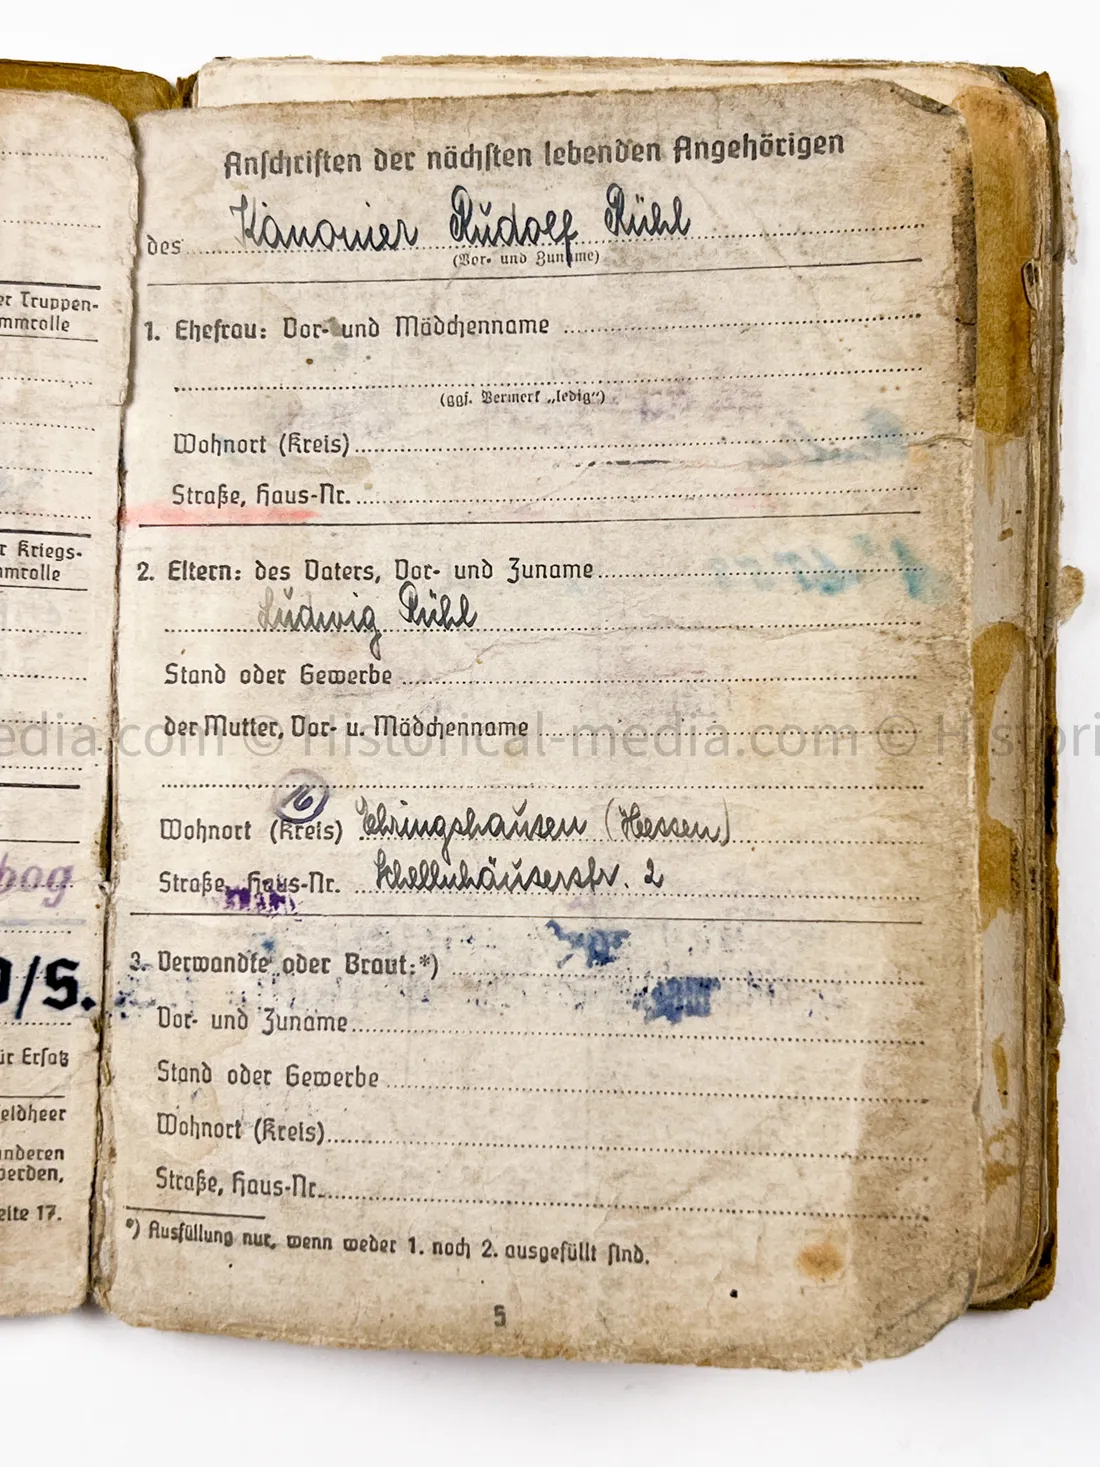 er Truppen-
mmrolle
r Kriegs-
mrolle
bog
/S.
ür Ersatz
eldheer
nderen
erden,
eite 17.
Anschriften der nächsten lebenden Angehörigen
des Kanonier Rudolf Rühl
(Vor- und Zuname)
1. Ehefrau: Vor- und Mädchenname
(ggf. Vermerk „ledig“)
Wohnort (Kreis)
Straße, Haus-Nr.
2. Eltern: des Vaters, Vor- und Zuname
Ludwig Rühl
Stand oder Gewerbe
der Mutter, Vor- u. Mädchenname
edia.com © Historical-media.com © Histori
16
Wohnort (Kreis) Ehringshausen (Hessen)
Straße, Haus-Nr. Schellnhäuserstr. 2
3. Verwandte oder Braut:*)
Vor- und Zuname
Stand oder Gewerbe
Wohnort (Kreis)
Straße, Haus-Nr.
*) Ausfüllung nur, wenn weder 1. noch 2. ausgefüllt sind.
5